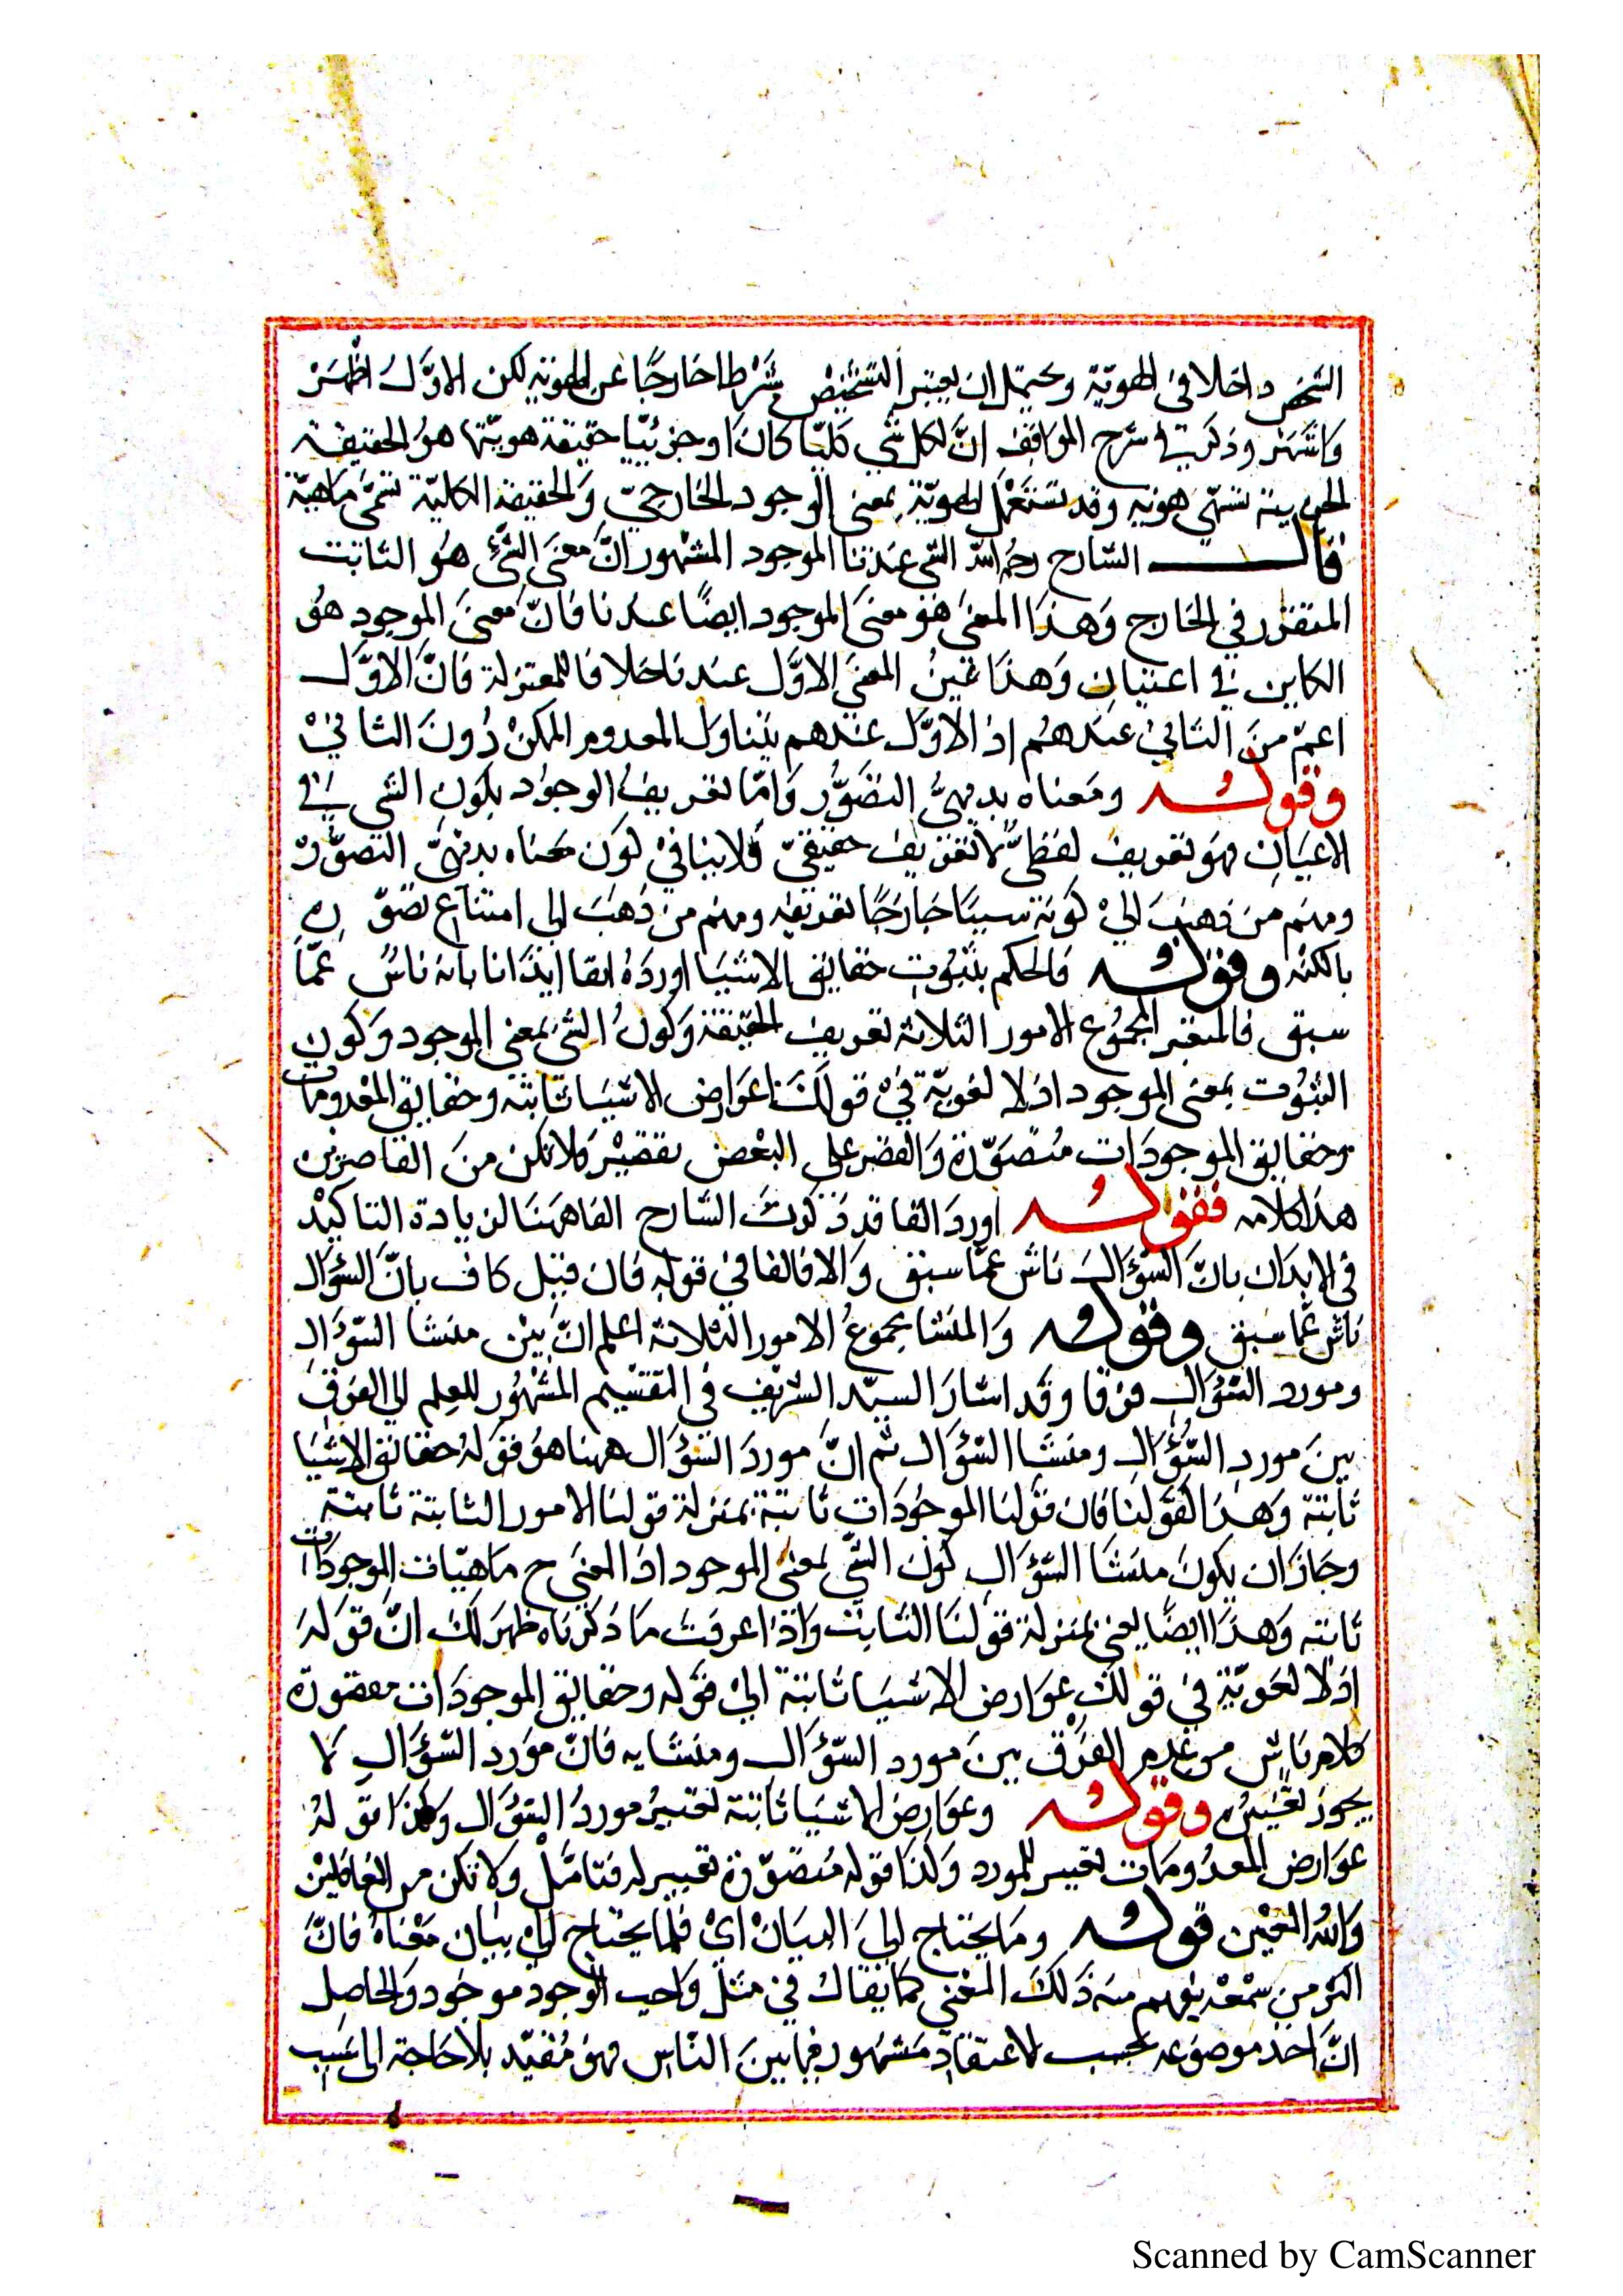 الشخص داخلا في الهوية ويحتمل ان يعتبر التشخيص شرطا خارجًا عن الهوية لكن الاوّل اظهر
واشتهر وذكر في شرح المواقف انّ لكل شي كليّا كان او جزئيّا حقيقة هويّتها هو الحقيقة
الجزيية تسمّى هوية وقد تستعمل الهويّة بمعنى الوجود الخارجيّ والحقيقة الكاليّة تسمّى ماهيّة
قال الشارح رحمه الله الشي عندنا الموجود المشهور انّ معنى الشّئ هو الثابت
المتقرّر في الخارج وهذا المعنى هو معنى الموجود ايضًا عندنا فانّ معنى الموجود هو
الكاين في اعتيان وهذا عينُ المعنى الاوّل عندنا خلا فا للمعتزلة فانّ الاوّل
اعمّ منَ الثاني عندهم اذ الاوّل عندهم يتناول المعدوم الممكن دُونَ الثانيْ
وقوله ومعناه بديهيُّ التصَوُّر وَامّا تعريفُ الوجوُد بكون الشي في
الاعيان فهو تعريف لفظيٌّ لا تعريف حقيقيّ فلا ينافي كون معناه بديهيّ التصوّر
ومنهم من ذهب اليْ كونه سببًا خارجًا تعريفه ومنهم من ذهبَ الى امتناع تصوّره
بالكنه وقوله فالحكم بثبوت حقايق الاشيا اورده الفا ايذانا بانه ناش عمّا
سبق فالمعتبر المجموع الامور الثلاثة تعريف الحقيقة وكون الشئ بمعنى الموجود وكون
الثبُوت بمعنى الموجود اذ لا لغويّة في قولك عوارض الاشيَا ثابتة وحقايق المعدومات
وحقايق الموجودَات متصوّرة وَالقصر على البعض تقصيْر ولا تكن منَ القاصرين
هذا كلامه فقوله اورد الفا قد ذكرت الشارح الفا ههنا لزيادة التاكيد
في الايذان بانّ السّؤال ناش عمّا سبق وَالا فالفا في قوله فان قيل كاف بانّ السؤال
ناش عمّا سَبق وقوله وَالمنشا مجموعُ الامور الثلاثة اعلم انّ بيْن منشا السّؤال
ومورد السّؤال فرقا وقد اشارَ السيّد الشريف في التقسيم المشهُور للعِلم الى الفرق
بينَ موردِ السّؤال ومنشا السّؤال ثم انّ موردَ السّؤال ههنا هوُ قوله حقائق الاشيَا
ثابتة وَهذا لقولنا فان قولنا الموجُودَات ثابتة بمنزلة قولنا الامور الثابتة ثابتة
وجَازَ ان يكونَ منشَا السّؤال كون الشّي بمعنى الموجود اذ المعنى ح ماهيّات الموجودات
ثابته وَهذَا ايضًا يعني بمنزلة قولنَا الثابت وَاذا عرفت ما ذكرناه ظهر لكَ انّ قوله
اذ لا لغويّة في قولك عوَارض الاشيَا ثابتة الى قوله وحقايق الموجودَات متصورة
كلام ناش من عدم الفرق بينَ مورد السّؤال ومنشايه فانّ مورد السّؤال لا
يجوز تغييرُه وقوله وعوَارض الاشيَا ثابتة تغييرُ موردُ السّؤال وكذا قولهُ
عوَارض المعدُومَات تغيير للمورد وَكذا قوله مُتصوّرة تغيير له فتامّلْ ولا تكن من الغافليْن
وَاللهُ المعيْن قوله ومَا يحتاج الىَ البيَانْ ايْ قلّما يحتاج الى بيَان معْنَاهُ فانّ
اكثر من سمعه يفهم منه ذلك المعنى كما يقال في مثل واجب الوجود موجود والحاصل
انّ اخذ موضوعه بحسب الاعتقاد مَشهُور فيما بينَ النّاس فهو مُفيد بلا حاجة الى
Scanned by CamScanner